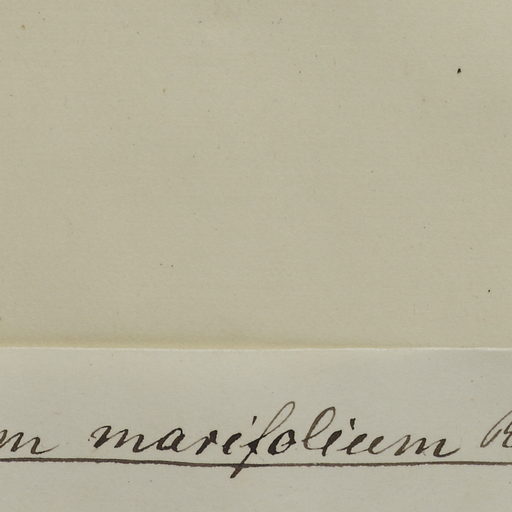 m marifolium